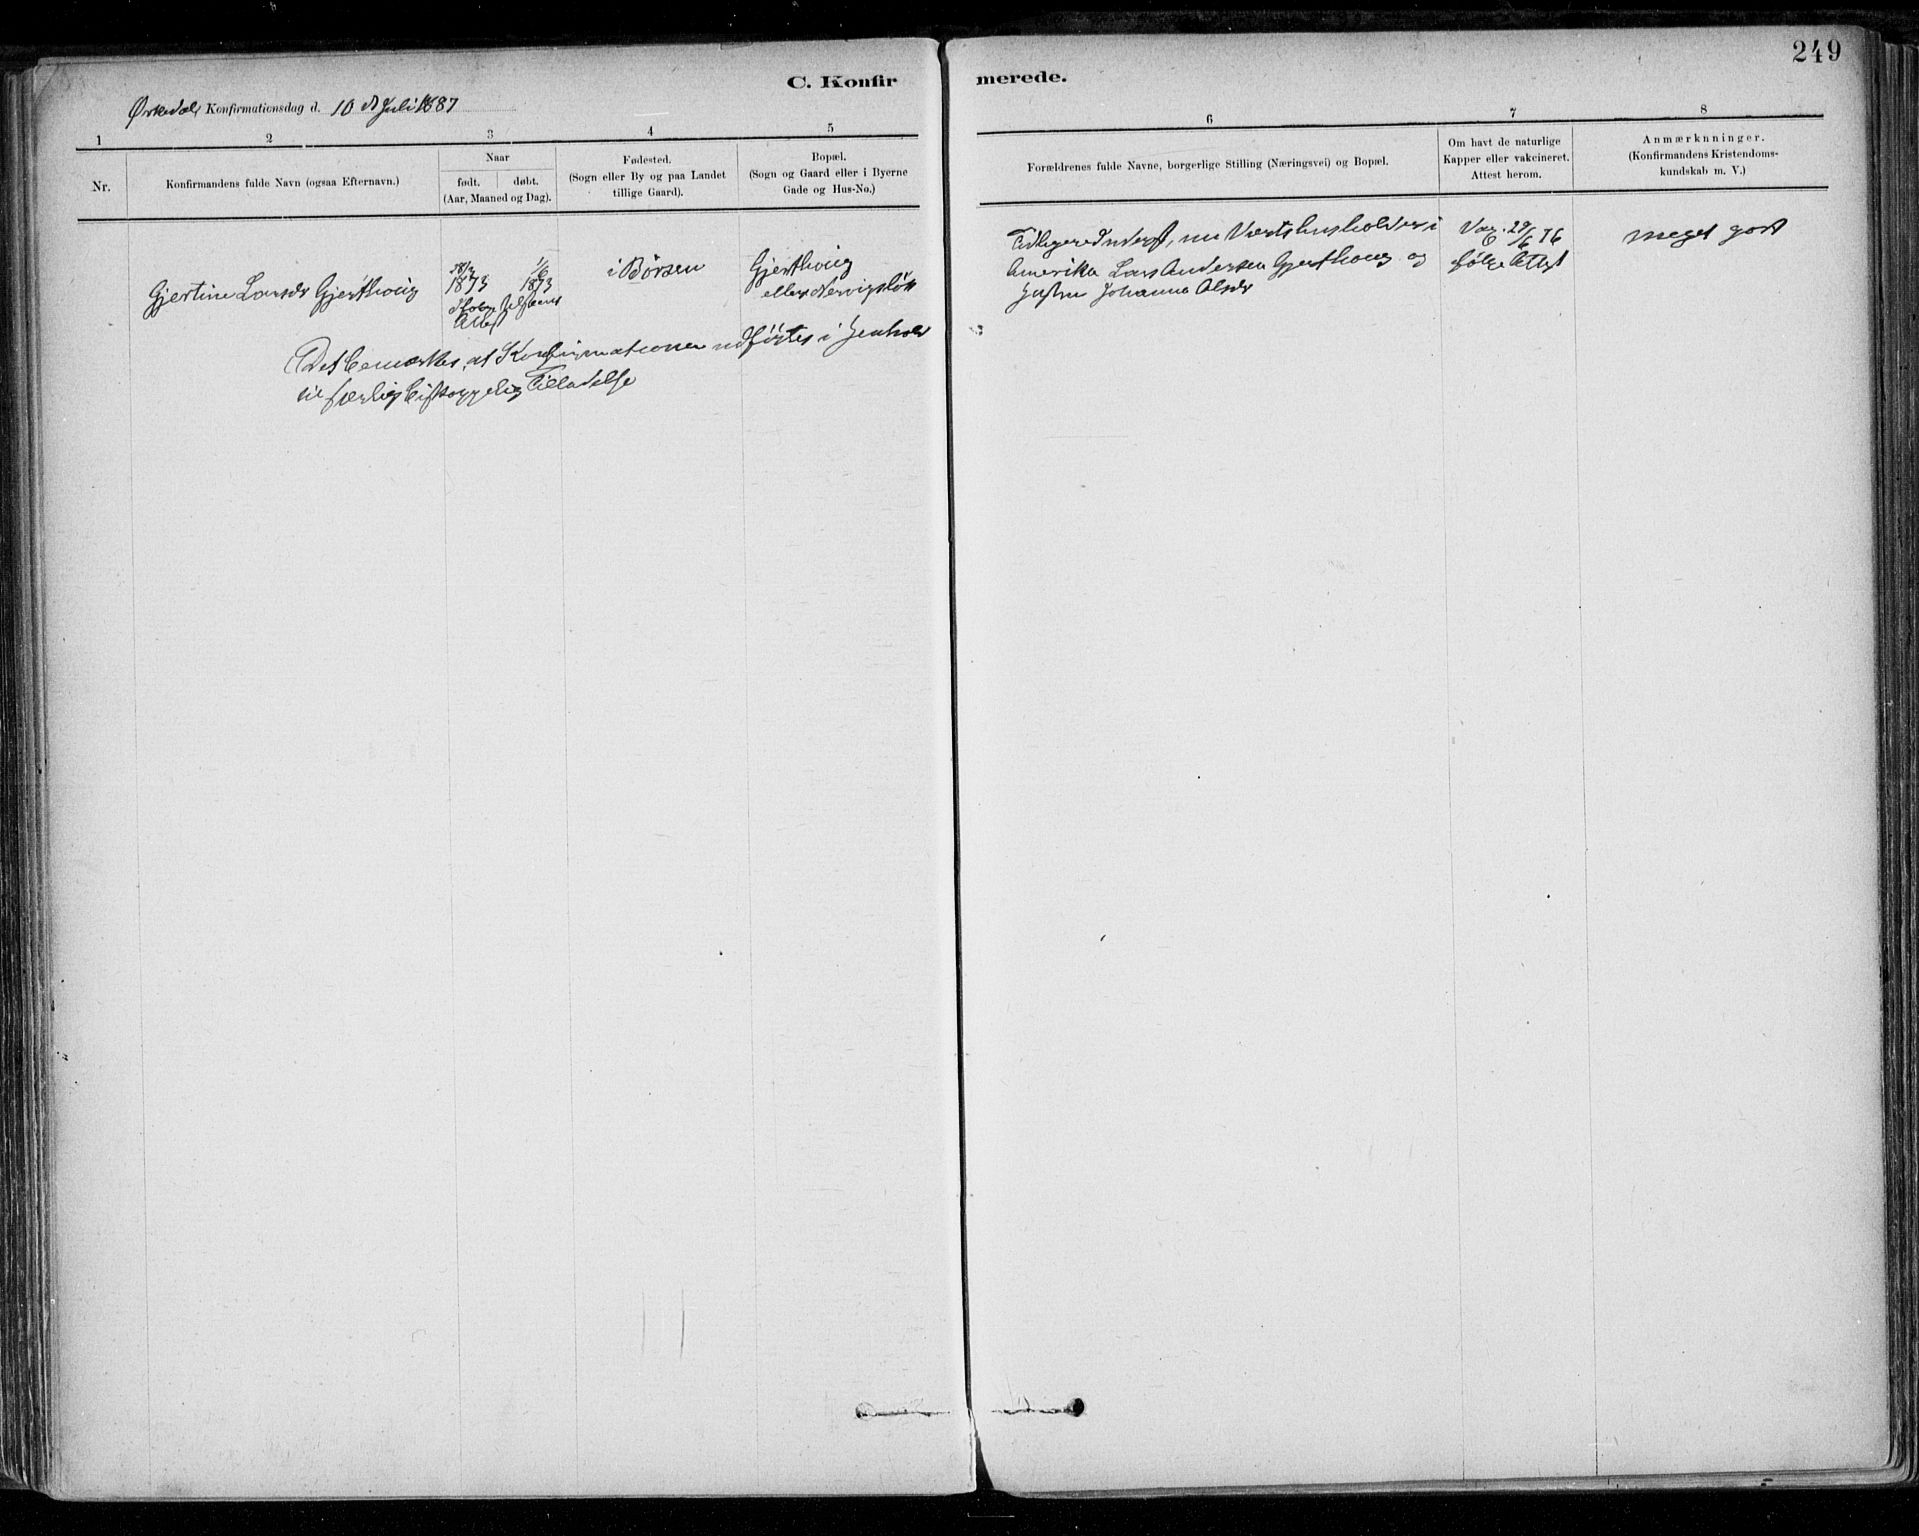 249
C. Konfirmerede.
Ørkedals Konfirmationsdag d. 10 d Juli 1887
1 2 3 4 5 6 7 8
Nr.
Konfirmandens fulde Navn (ogsaa Efternavn.)
Naar
født. døbt.
(Aar, Maaned og Dag).
Fødested.
(Sogn eller By og paa Landet
tillige Gaard).
Bopæl.
(Sogn og Gaard eller i Byerne
Gade og Hus-No.)
Forældrenes fulde Navne, borgerlige Stilling (Næringsvei) og Bopæl.
Om havt de naturlige
Kapper eller vakcineret.
Attest herom.
Anmærknninger.
(Konfirmandens Kristendoms-
kundskab m. V.)
Gjertine Larsdr Gjerthoug
1873
Attest
1/6
1873
i Børsen
Gjerthoug
eller
Tidligere Inderst, nu Værtshusholder i
Amerika Lars Andersen Gjerthoug og
Hustru Johanna Olsdr
Vac. 29/6 76
følge Attest
meget godt
Det bemærkes, at Konfirmationen udførtes i Henhold
til særlig biskoppelig Tilladelse